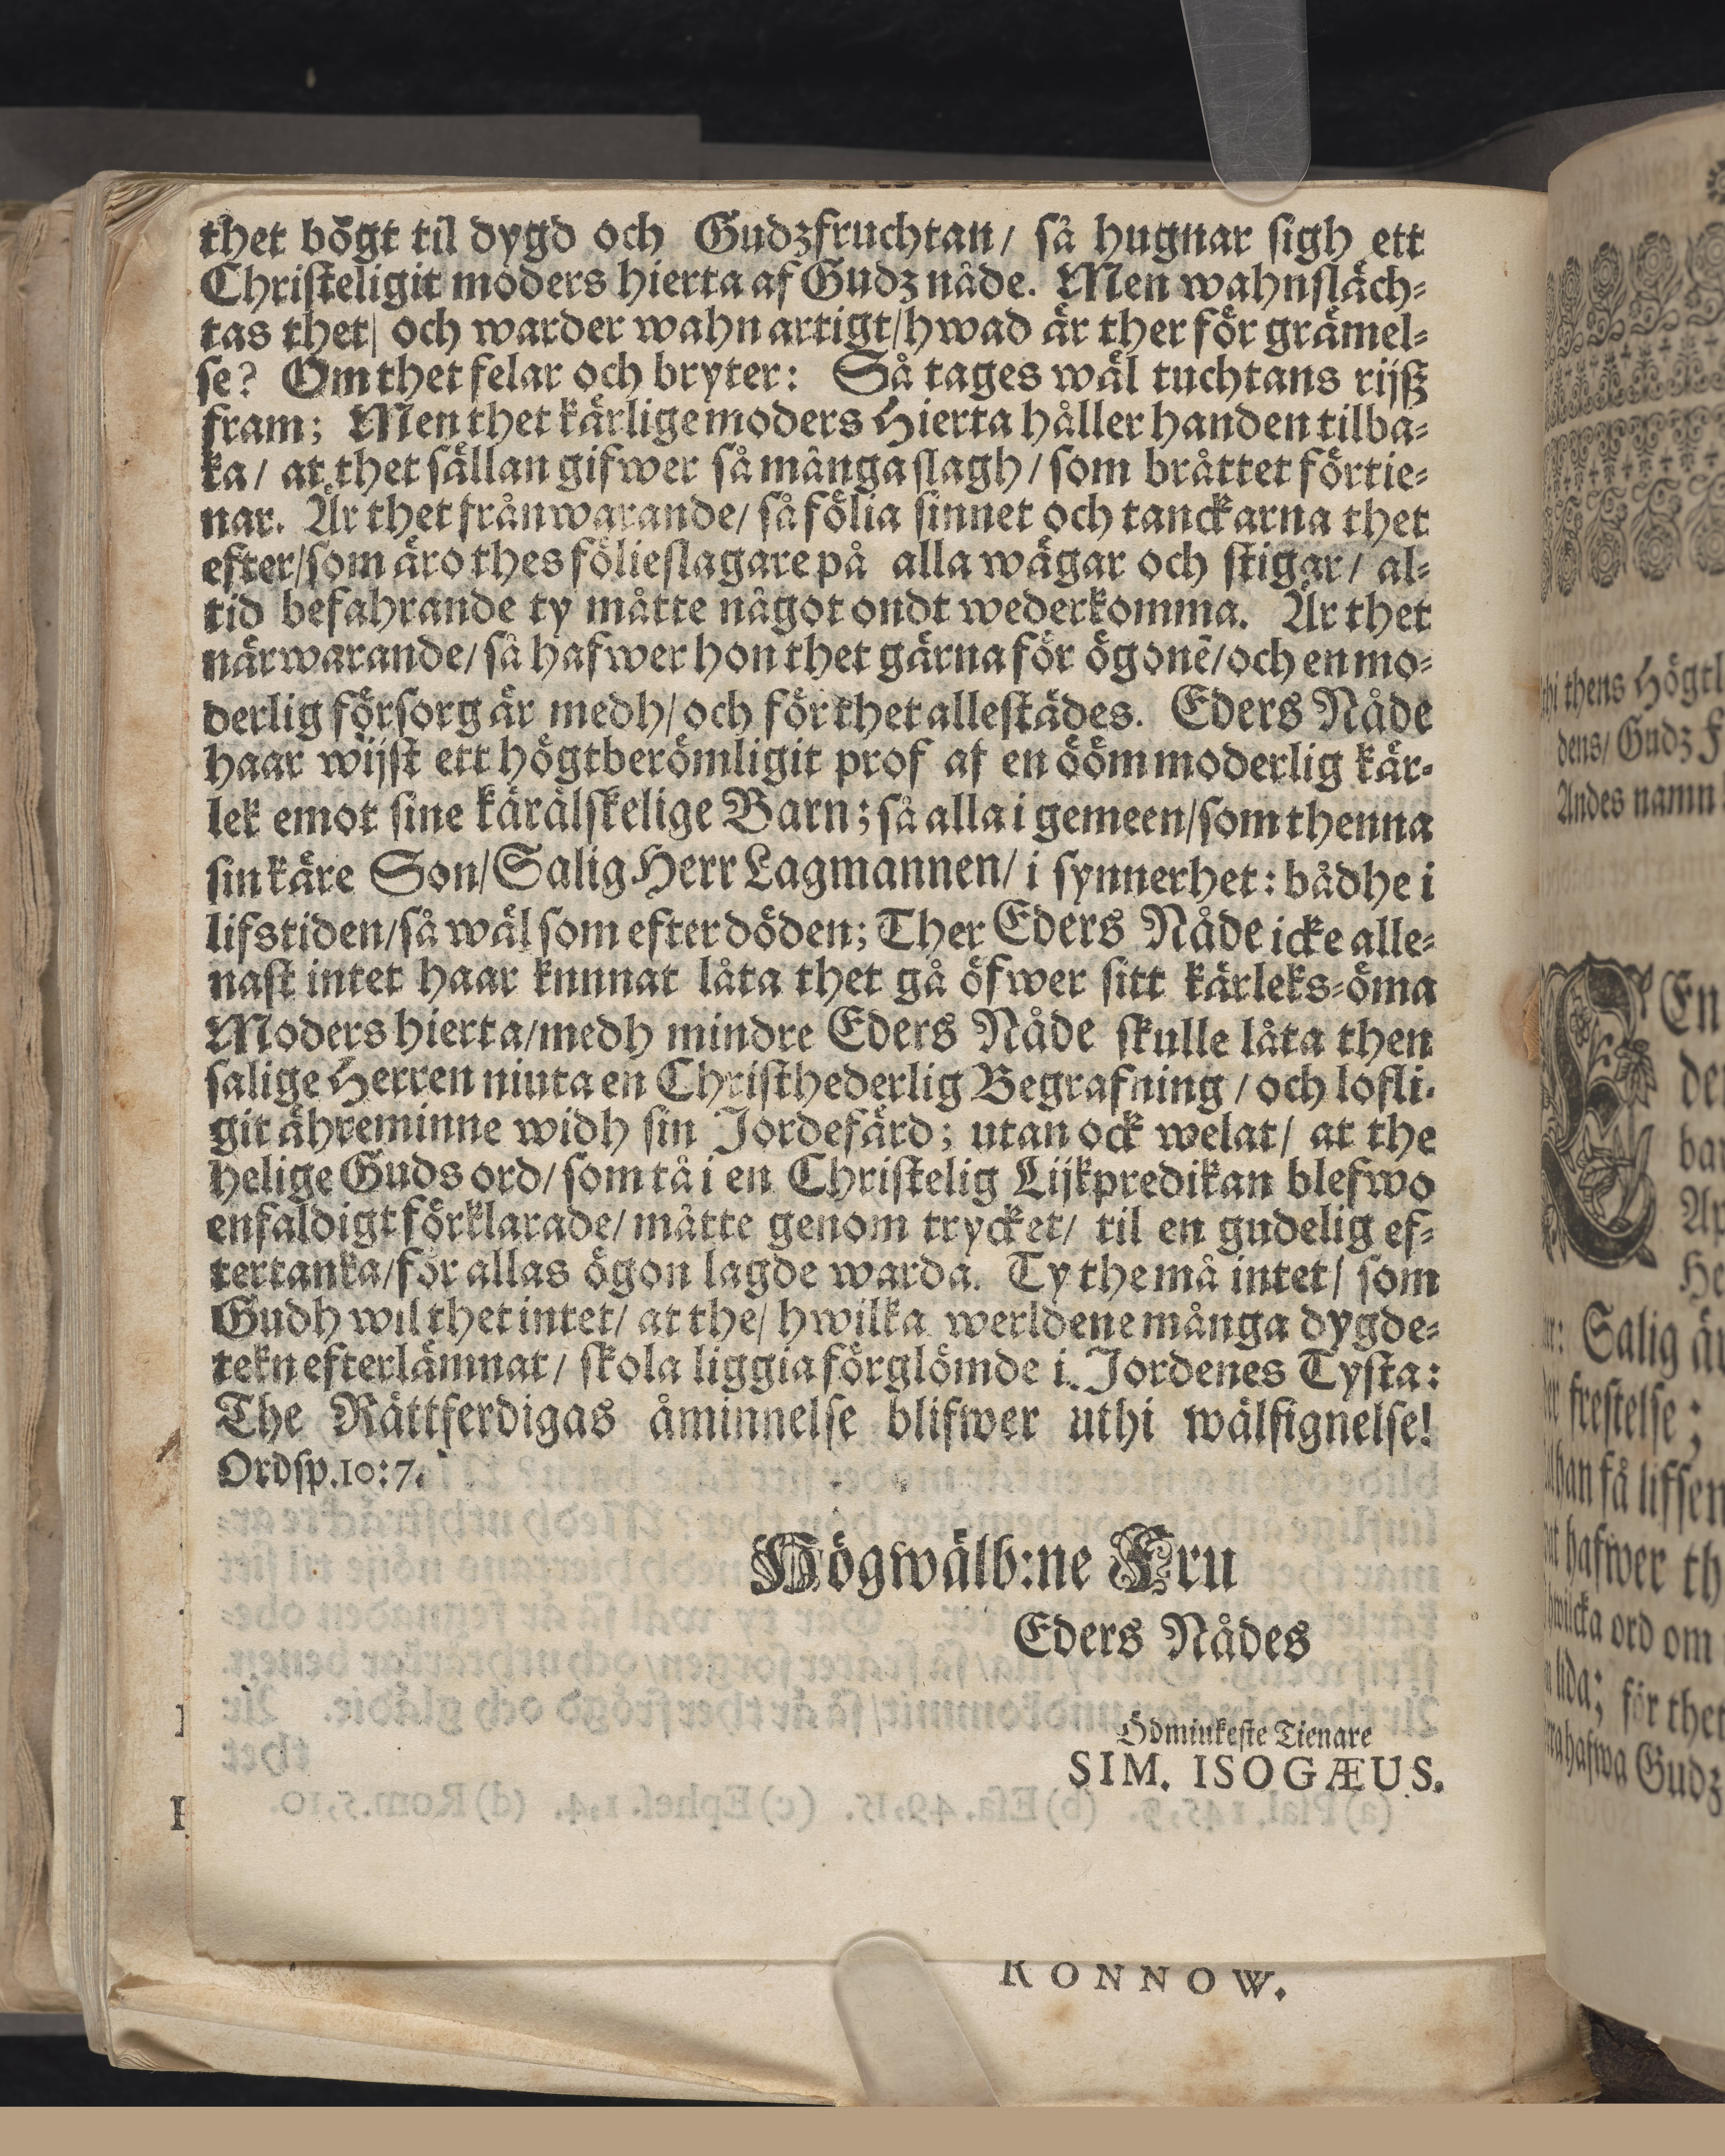 thet bögt til dygd och Gudzfruchtan/ så hugnar sigh ett
Christeligit moders hierta af Gudz nåde. Men wahnsläch-
tas thet/ och warder wahnartigt/hwad är ther för grämel-
se? Om thet felar och bryter: Så tages wäl tuchtans rijß
fram; Men thet kärlige moders Hierta håller handen tilba-
ka/ at thet sällan gifwer så många slagh/ som bråttet förtie-
nar. Är thet frånwarande/ så fölia sinnet och tanckarna thet
efter/som äro thes fölieslagare på alla wägar och stigar/ al-
tid befahrande ty måtte något ondt wederkomma. Är thet
närwarande/ så hafwer hon thet gärna för ögonē/och en mo-
derlig försorg är medh/ och för thet allestädes. Eders Nåde
haar wijst ett högtberömligit prof af en ööm moderlig kär-
lek emot sine kärälskelige Barn; så alla i gemeen/som thenna
sin käre Son/Salig Herr Lagmannen/ i synnerhet: bådhe i
lifstiden/så wäl som efter döden; Ther Eders Nåde icke alle-
nast intet haar kunnat låta thet gå öfwer sitt kärleks-öma
Moders hierta/medh mindre Eders Nåde skulle låta then
salige Herren niuta en Christhederlig Begrafning / och lofli-
git ähreminne widh sin Jordefärd; utan ock welat/ at the
helige Guds ord/ som tå i en Christelig Lijkpredikan blefwo
enfaldigt förklarade/ måtte genom trycket/ til en gudelig ef-
tertanka/för allas ögon lagde warda. Ty the må intet/ som
Gudh wil thet intet/ at the/ hwilka werldene många dygde-
tekn efterlämnat/ skola liggia förglömde i Jordenes Tysta:
The Rättferdigas åminnelse blifwer uthi wälsignelse!
Ordsp.10:7.
Högwälb:ne Fru
Eders Nådes
Ödmiukeste Tienare
SIM. ISOGÆUS.
RONNOW.
thens Högtl
dens/ Gudz F
Andes namn
En
Salig ä
frestelse;
få lifsen
hafwer th
ord om
för thet
hafwa Gudz